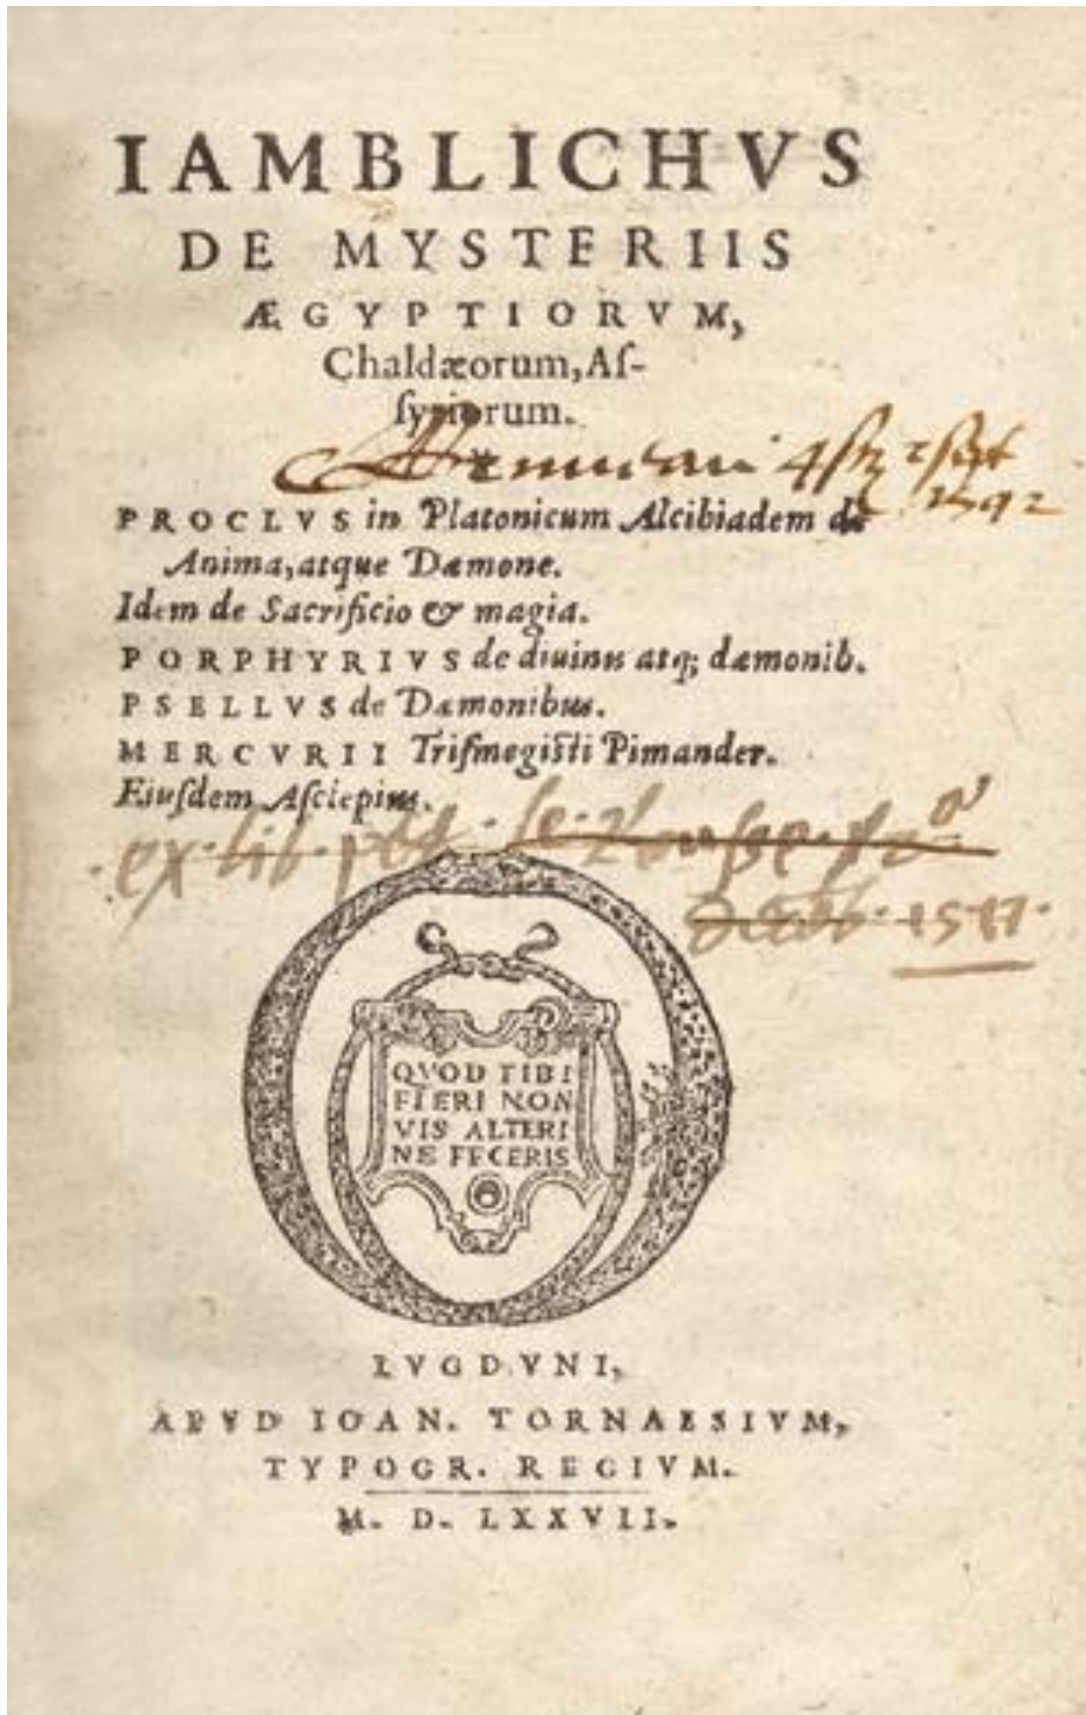 IAMBLICHVS
DE MYSTERIIS
ÆGYPTIORVM,
Chaldæorum, Aſ-
ſyriorum.
1592
PROCLVS in Platonicum Alcibiadem de
Anima, atque Dæmone.
Idem de Sacrificio & magia.
PORPHYRIVS de diuinis atq; dæmonib.
PSELLVS de Dæmonibus.
MERCVRII Triſmegiſti Pimander.
Eiuſdem Aſclepius.
ex lib
QVOD TIBI
FIERI NON
VIS ALTERI
NE FECERIS
LVGDVNI,
APVD IOAN. TORNAESIVM,
TYPOGR. REGIVM.
M. D. LXXVII.